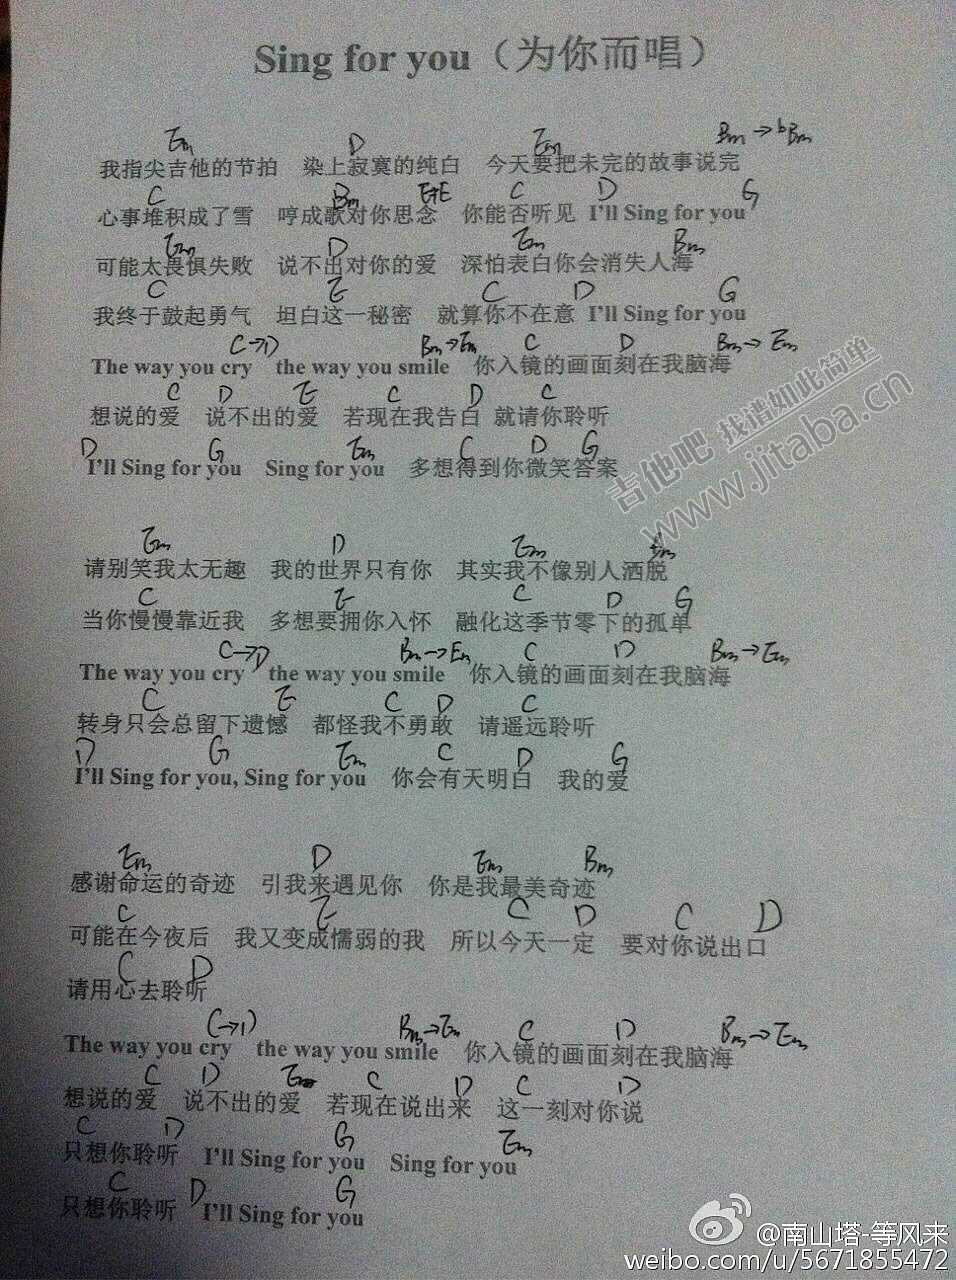 Sing for you（为你而唱）
Em D Em Bm→bBm
我指尖吉他的节拍 染上寂寞的纯白 今天要把未完的故事说完
C Bm E C D G
心事堆积成了雪 哼成歌对你思念 你能否听见 I'll Sing for you
Em D Em Bm
可能太畏惧失败 说不出对你的爱 深怕表白你会消失人海
C E C D G
我终于鼓起勇气 坦白这一秘密 就算你不在意 I'll Sing for you
C→D Bm→Em C D Bm→Em
The way you cry the way you smile 你入镜的画面刻在我脑海
C D E C D C
想说的爱 说不出的爱 若现在我告白 就请你聆听
D G Em C D G
I'll Sing for you Sing for you 多想得到你微笑答案
吉他吧 找谱如此简单
www.jitaba.cn
Em D Em Bm
请别笑我太无趣 我的世界只有你 其实我不像别人洒脱
C E C D G
当你慢慢靠近我 多想要拥你入怀 融化这季节零下的孤单
C→D Bm→Em C D Bm→Em
The way you cry the way you smile 你入镜的画面刻在我脑海
C E C D C
转身只会总留下遗憾 都怪我不勇敢 请遥远聆听
D G Em C D G
I'll Sing for you, Sing for you 你会有天明白 我的爱
Em D Em Bm
感谢命运的奇迹 引我来遇见你 你是我最美奇迹
C E C D C D
可能在今夜后 我又变成懦弱的我 所以今天一定 要对你说出口
C D
请用心去聆听
C→D Bm→Em C D Bm→Em
The way you cry the way you smile 你入镜的画面刻在我脑海
C D Em C D C D
想说的爱 说不出的爱 若现在说出来 这一刻对你说
C D G Em
只想你聆听 I'll Sing for you Sing for you
C D G
只想你聆听 I'll Sing for you
@南山塔-等风来
weibo.com/u/5671855472